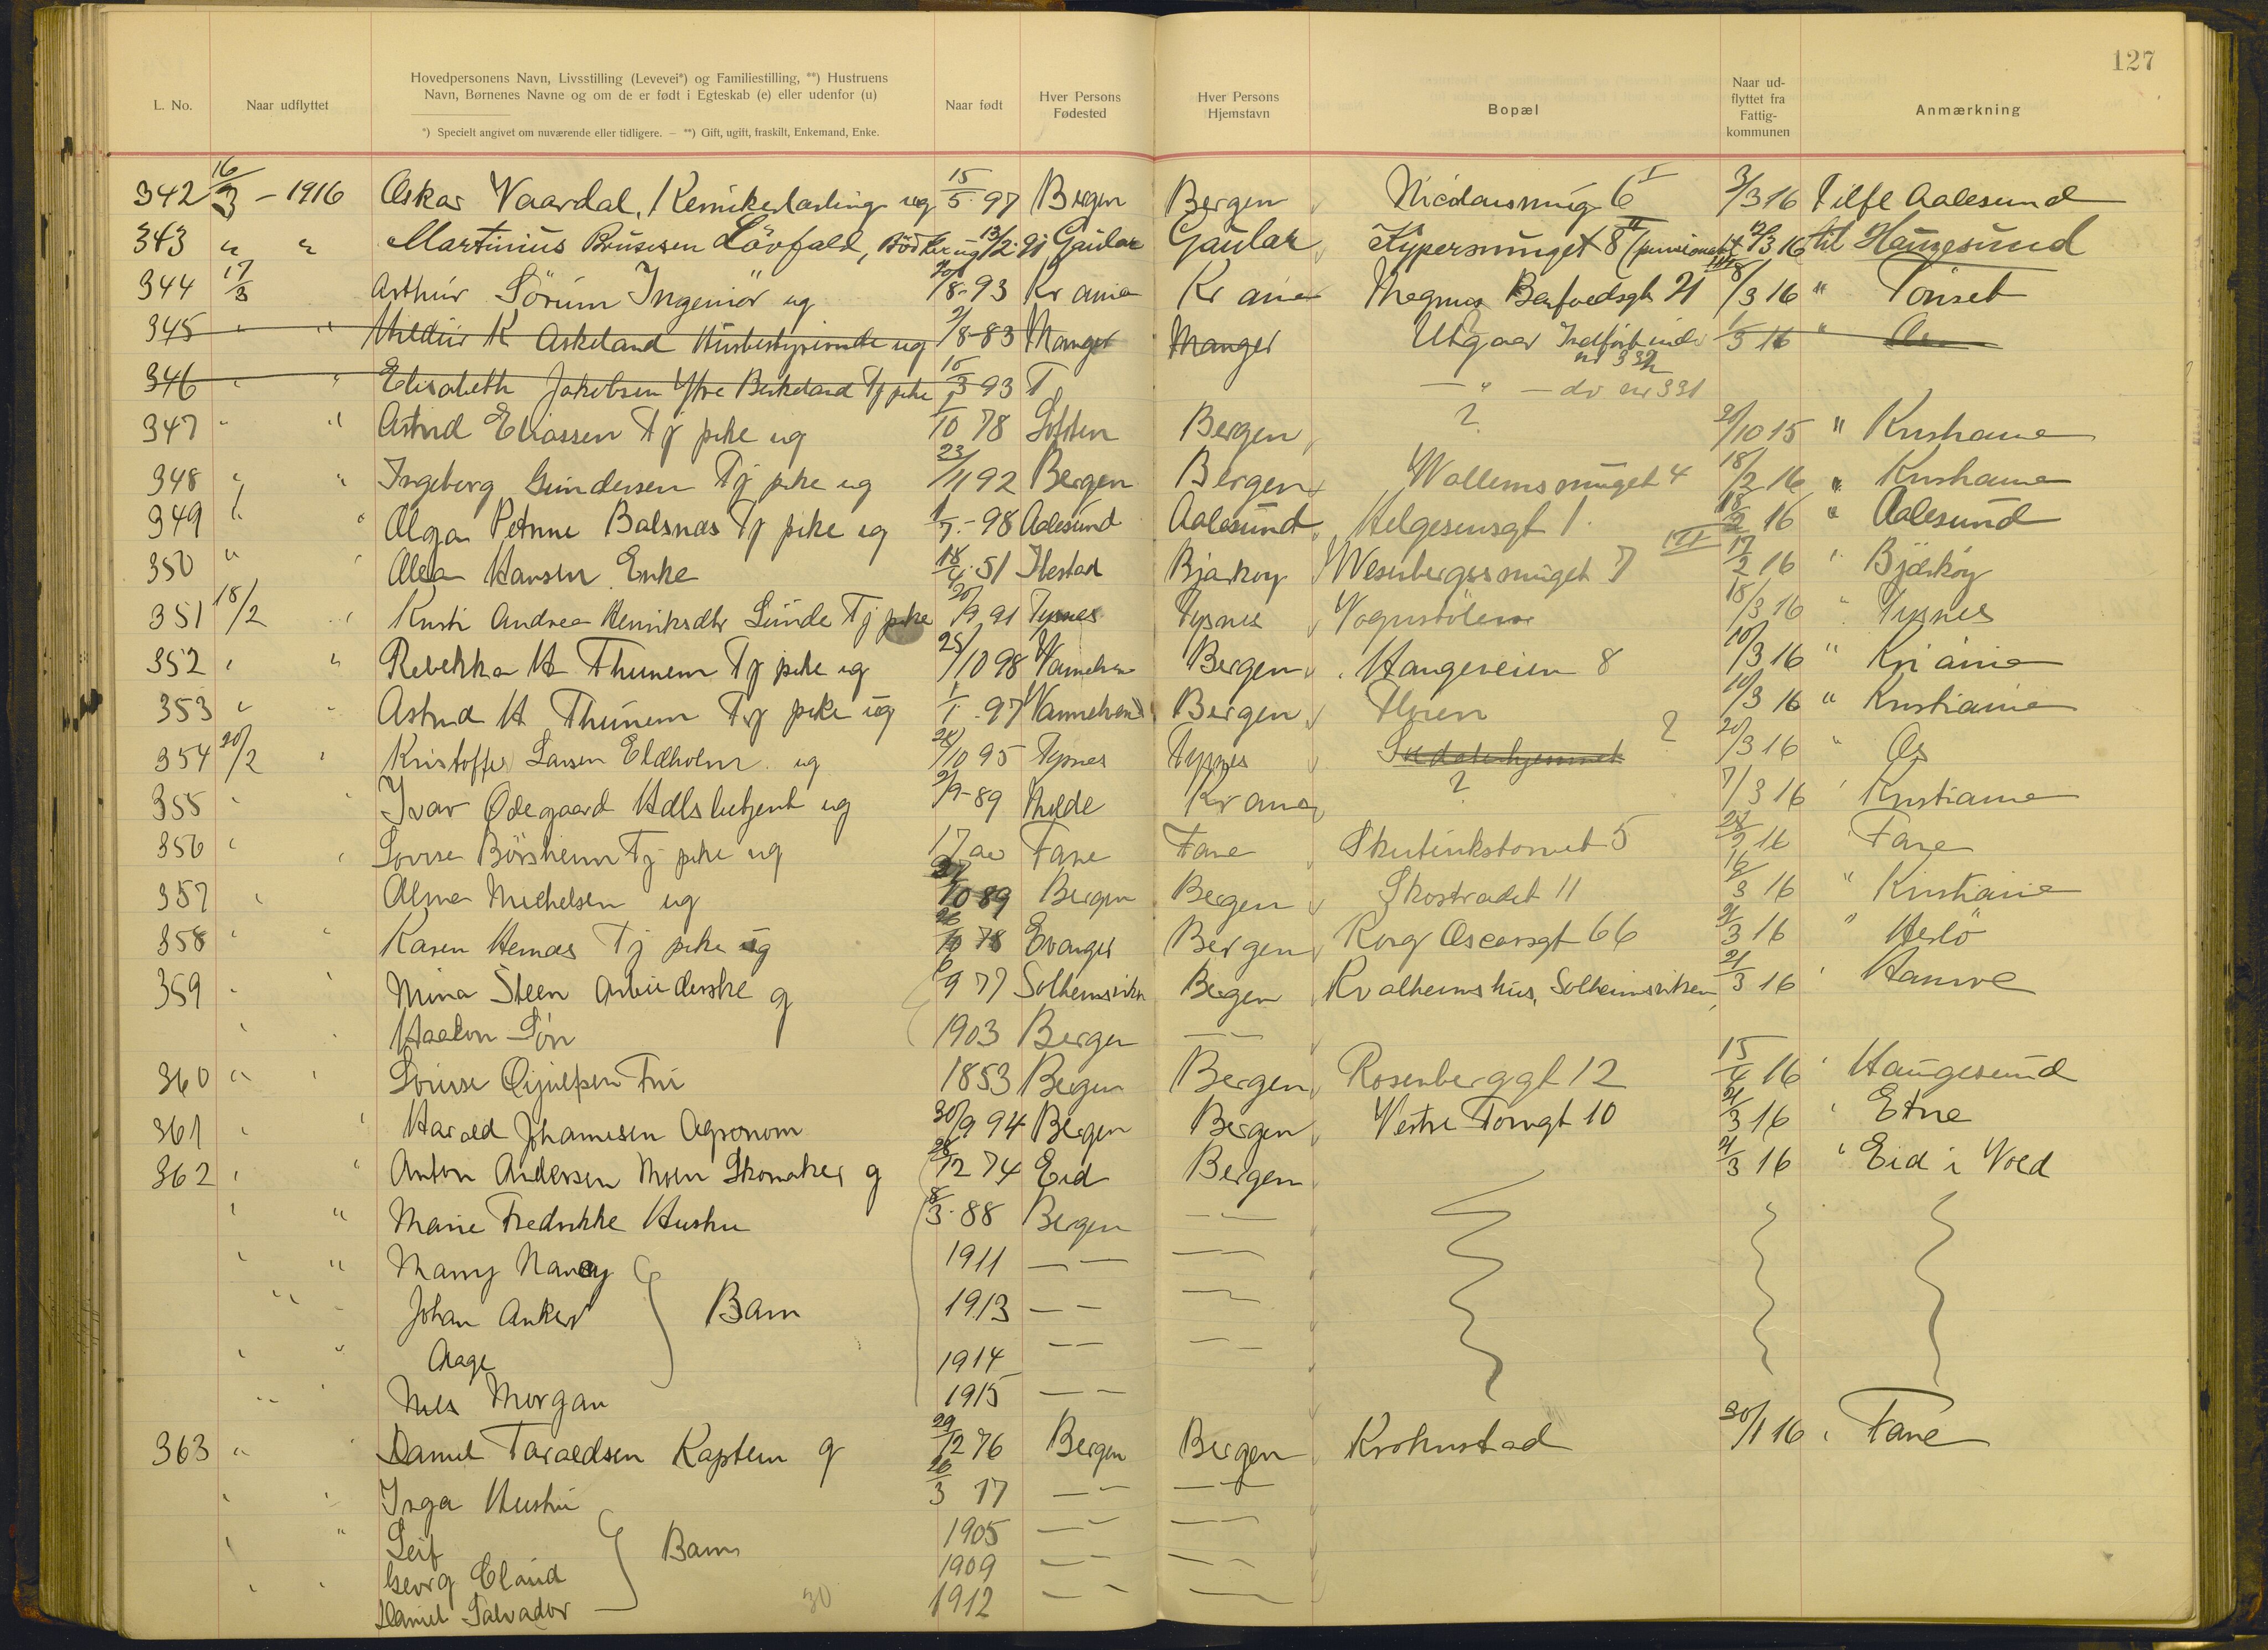 127
L. No.
Naar udflyttet
Hovedpersonens Navn, Livsstilling (Levevei*) og Familiestilling, **) Hustruens
Navn, Børnenes Navne og om de er født i Egteskab (e) eller udenfor (u)
*) Specielt angivet om nuværende eller tidligere. – **) Gift, ugift, fraskilt, Enkemand, Enke.
Naar født
Hver Persons
Fødested
Hver Persons
Hjemstavn
Bopæl
Naar ud-
flyttet fra
Fattig-
kommunen
Anmærkning
342 16/3 - 1916 Oskar Vaardal, ug 15/5 97 Bergen Bergen 6 I 3/3 16 Aalesund
343 " " Martinius Brusesen Lövfald, Bödker ug 13/2 Gaular Gaular Kypersmuget 8 II 3 16 til Haugesund
344 17/3 Arthur Sörum Ingeniör ug 8-93 Kr ania Kr ania Magnus Barfoedsgt 21 /3 16 " Tönset
345 " " Askeland Husbestyrerinde ug /8-83 Manger Manger Utgaar Indfört under nr 332 16 "
346 " " Elisabeth Jakobsen Ytre Birkeland Tj pike 15/3 93 — " — do nr 331
347 " " Astrid Eliassen Tj pike ug /10 78 Bergen ? 20/10 15 " Kristiania
348 " " Ingeborg Gundersen Tj pike ug 23/11 92 Bergen Bergen Wollemsmuget 4 18/2 16 " Kristiania
349 " " Olga Petrine Balsnes Tj pike ug 1/7 - 98 Aalesund Aalesund Helgesensgt 1. 18/2 16 " Aalesund
350 " " Olea Hansen Enke 18/4 51 Ibestad Bjarköy Wesenbergssmuget 7 III 17/2 16 " Bjarköy
351 18/2 " Kristi Andrea Henriksdtr Lunde Tj pike 20/9 91 Tysnes Tysnes 18/3 16 " Tysnes
352 " " Rebekka H Thunem Tj pike ug 25/10 98 Bergen Haugeveien 8 10/3 16 " Kr ania
353 " " Astrid H Thunem Tj pike ug 1/1 - 97 Bergen 10/3 16 " Kristiania
354 20/2 " Kristoffer Larsen Eldholm ug /10 95 Tysnes Tysnes Soldaterhjemmet ? 20/3 16 " Os
355 " " Ivar Ödegaard Hdlsbetjent ug /9-89 Molde Kr ania ? 7/3 16 " Kristiania
356 " " Lovise Börsheim Tj pike ug 17 aar Fane Fane Skutevikstorvet 5 16 Fane
357 " Alma Michelsen ug 27/10 89 Bergen Bergen Skostrædet 11 16/3 16 " Kristiania
358 " " Karen Hernes Tj pike ug 26/10 78 Evanger Bergen Kong Oscarsgt 66 21/3 16 " Herlö
359 " " Mina Steen Arbeiderske g /9 77 Solheimsviken Bergen Kvalheimshus, Solheimsviken, 21/3 16 " Hamre
" " Haakon Sön 1903 Bergen — —
360 " " Lovise Fru 1853 Bergen Bergen Rosenberggt 12 15/4 16 " Haugesund
361 " " Harald Johannesen Agronom 30/9 94 Bergen Bergen Vestre Torvgt 10 21/3 16 " Etne
362 " " Anton Andersen Moen Skomaker g 28/12 74 Eid Bergen 21/3 16 " Eid i Vold
" " Marie Fredrikke Hustru 8/3 - 88 Bergen — —
" " Nancy 1911 — — — —
" " Johan Anker } Barn 1913 — — — —
" " Aage 1914 — — — —
" " Nils Morgan 1915 — —
363 " " Daniel Taraldsen Kaptein g 29/12 76 Bergen Bergen Krohnstad 30/1 16 " Fane
" " Inga Hustru 26/3 77 — — — —
" " Leif } Barn 1905 — — — —
Georg 1909 — — — —
" " Daniel Salvador 30 1912 — — — —